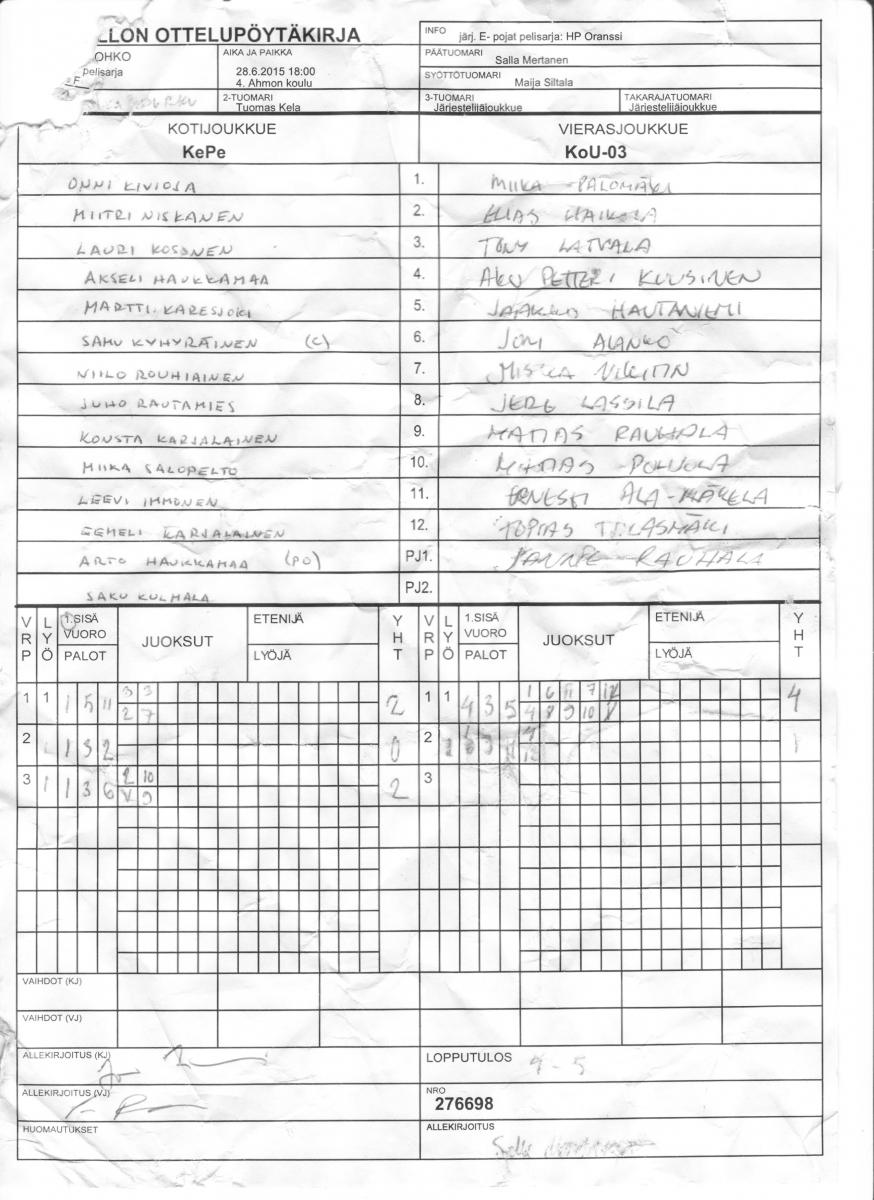 LLON OTTELUPÖYTÄKIRJA
OHKO
pelisarja
F
AIKA JA PAIKKA
28.6.2015 18:00
4. Ahmon koulu
2-TUOMARI
Tuomas Kela
INFO järj. E- pojat pelisarja: HP Oranssi
PÄÄTUOMARI
Salla Mertanen
SYÖTTÖTUOMARI
Maija Siltala
3-TUOMARI
Järjestelijäjoukkue
TAKARAJATUOMARI
Järjestelijäjoukkue
KOTIJOUKKUE VIERASJOUKKUE
KePe KoU-03
ONNI KIVIOJA 1. MIIKA PALOMÄKI
MIITRI NISKANEN 2. ELIAS HAIKOLA
LAURI KOSONEN 3. TONY LATVALA
AKSELI HAUKKAMAA 4. AKU PETTERI KUUSINEN
MARTTI KARESJOKI 5. JAAKKO HAUTANIEMI
SAMU KYHYRÄINEN (C) 6. JONI ALANKO
NIILO ROUHIAINEN 7. MISKA
JUHO RAUTAMIES 8. JERE LASSILA
KONSTA KARJALAINEN 9. MATIAS RAUHALA
MIIKA SALOPELTO 10. MATIAS
LEEVI IMMONEN 11. ERNESTI ALA-MÄKELÄ
EEMELI KARJALAINEN 12. TOPIAS
ARTO HAUKKAMAA (PO) PJ1. RAUHALA
SAKU KULMALA PJ2.
VRP LYÖ 1.SISÄ VUORO PALOT JUOKSUT ETENIJÄ LYÖJÄ YHT VRP LYÖ 1.SISÄ VUORO PALOT JUOKSUT ETENIJÄ LYÖJÄ YHT
1 1 1 5 11 3 3 2 1 1 4 3 5 1 6 11 7 4
2 7 4 8 9 10
2 1 1 3 2 0 2 1
3 1 1 3 6 2 10 2 3
9
VAIHDOT (KJ)
VAIHDOT (VJ)
ALLEKIRJOITUS (KJ) LOPPUTULOS 4 - 5
ALLEKIRJOITUS (VJ) NRO
276698
HUOMAUTUKSET ALLEKIRJOITUS